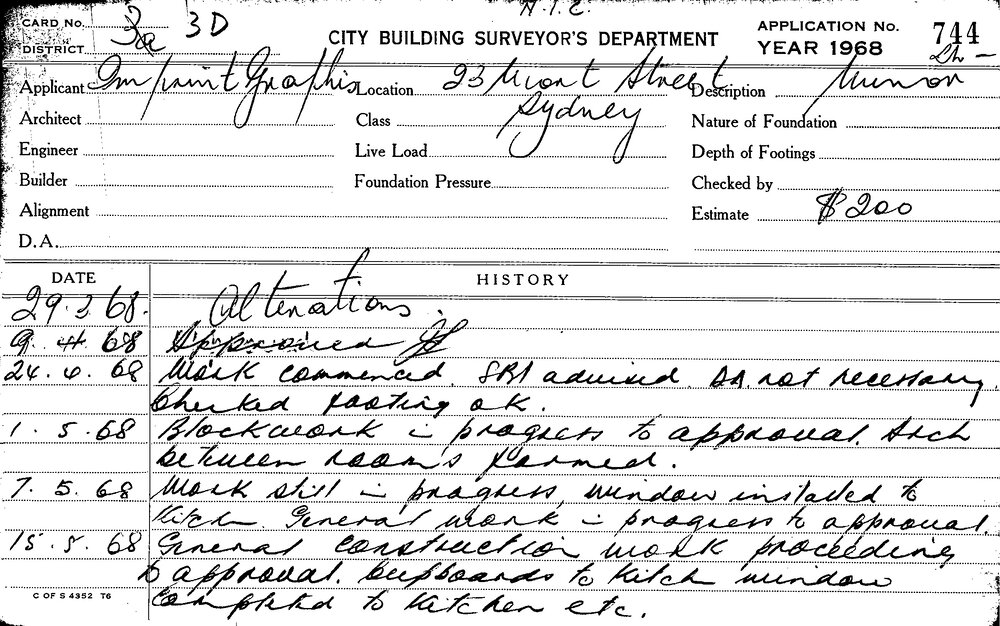 N.I.C.
CARD No. 3a 3D
DISTRICT
CITY BUILDING SURVEYOR'S DEPARTMENT
APPLICATION No. 744
YEAR 1968
Applicant Imprint Graphis Location 23 Mount Street Description Minor
Architect Class Sydney Nature of Foundation
Engineer Live Load Depth of Footings
Builder Foundation Pressure Checked by
Alignment Estimate $200
D.A.
DATE HISTORY
29.3.68. Alterations.
9.4.68 Approved
24.4.68 Work commenced. advised DA not necessary.
Checked footing ok.
1.5.68 Blockwork in progress to approval. Arch
between room's formed.
7.5.68 Work still in progress, window installed to
Kitch. General work in progress to approval.
15.5.68 General construction work proceeding
to approval. Cupboards to Kitch window
completed to Kitchen etc.
C OF S 4352 T6